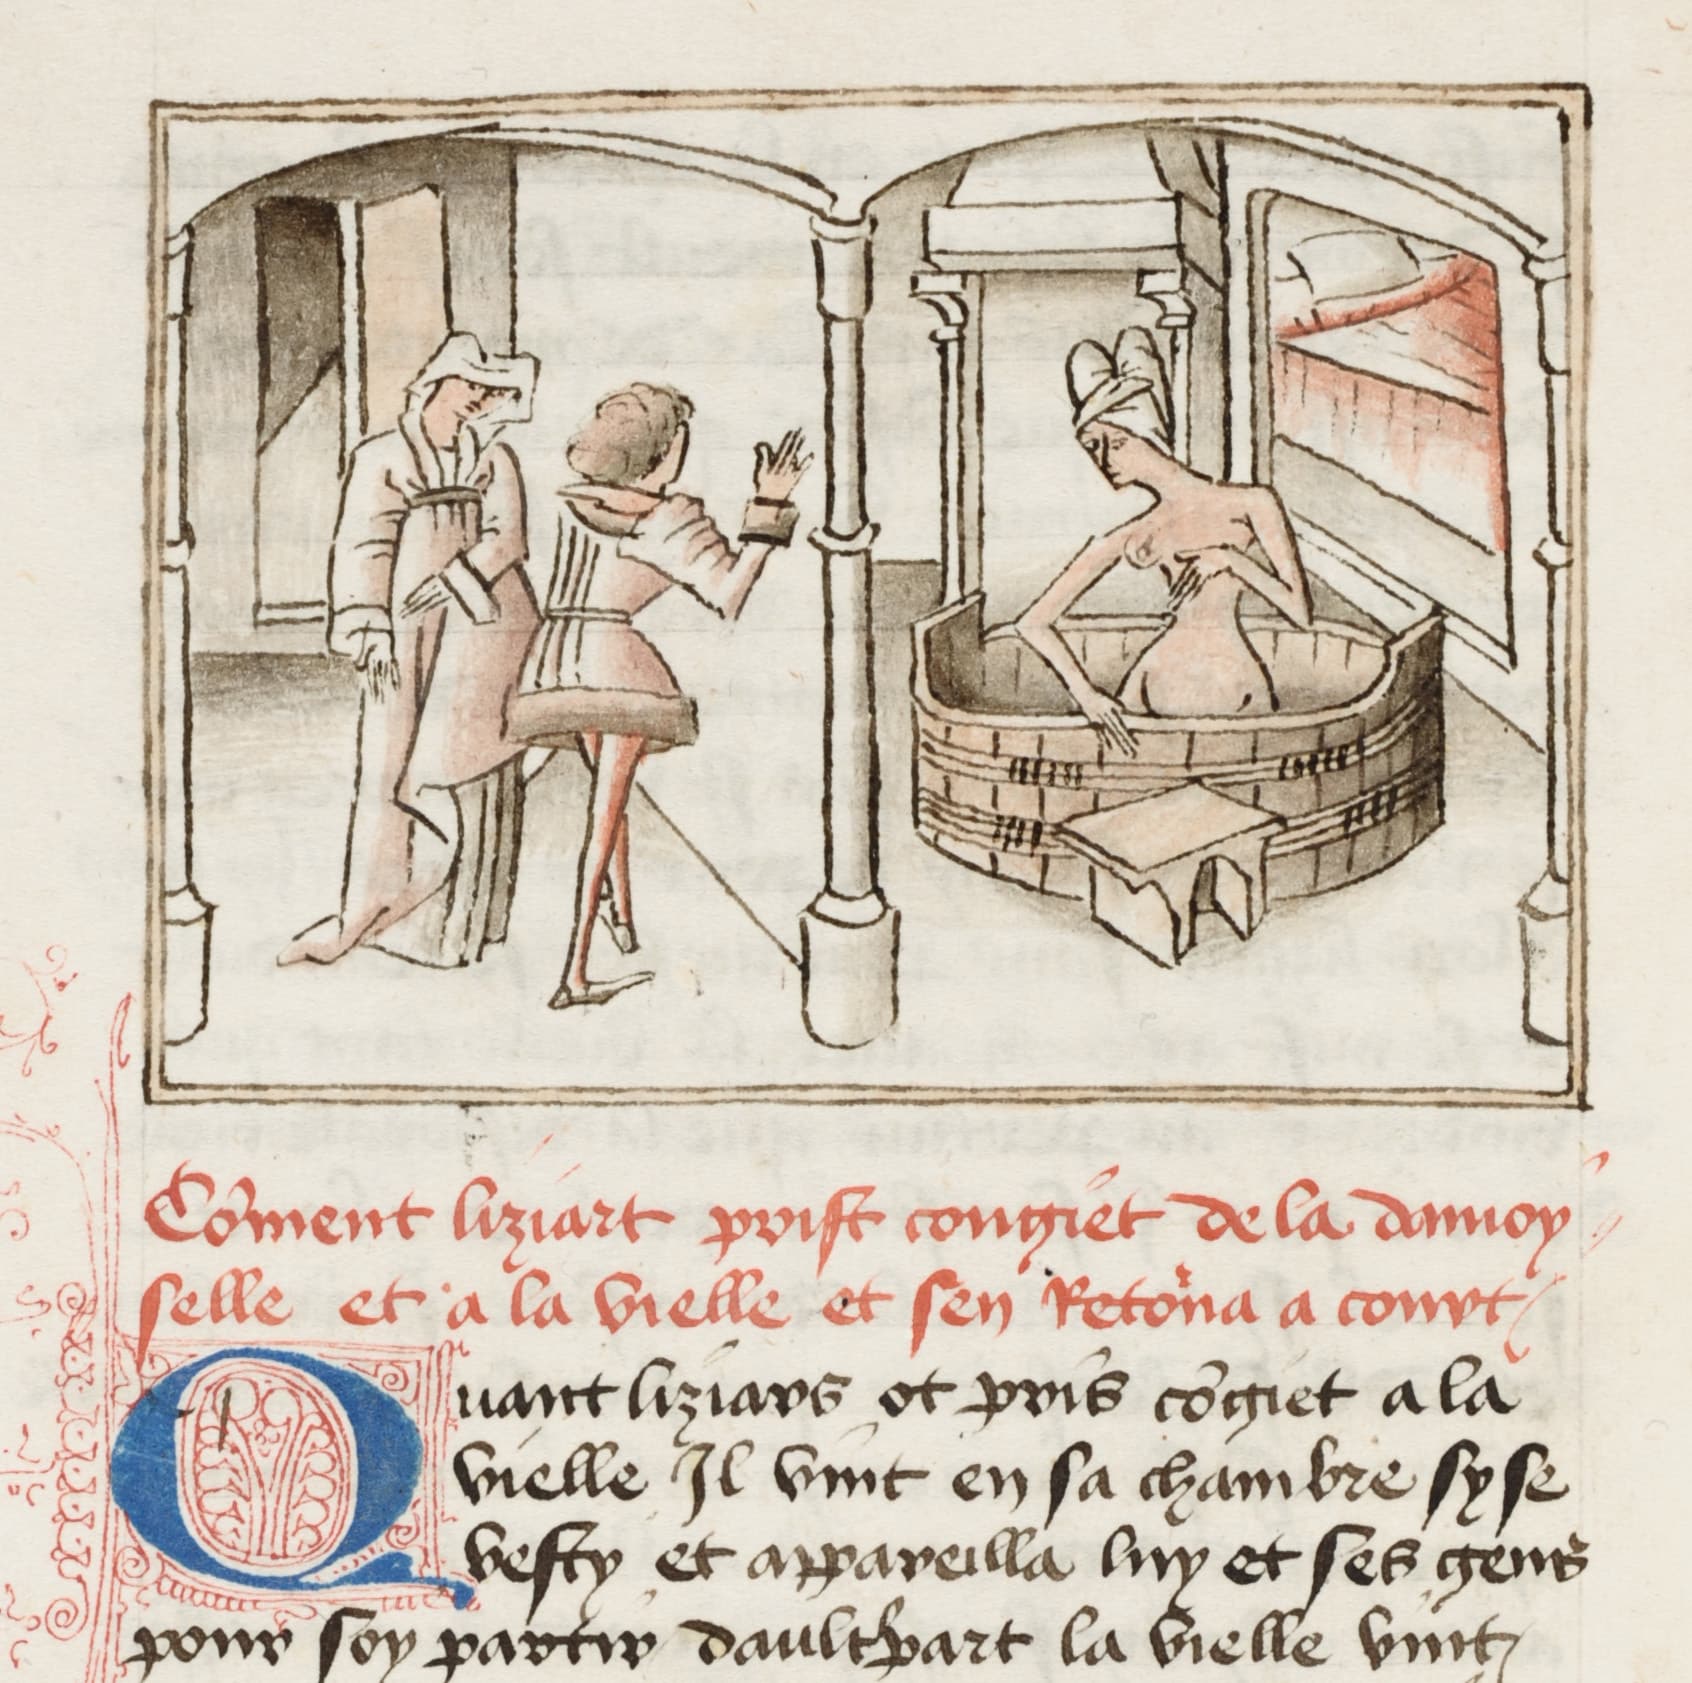 Cõment liziart prist congiet de la damoy
selle et a la vielle et sen Retõrna a court
Quant liziars ot pris cõgiet a la
vielle Il vint en sa chambre sy se
vesty et appareilla luy et ses gens
pour soy partir daultrepart la vielle vint